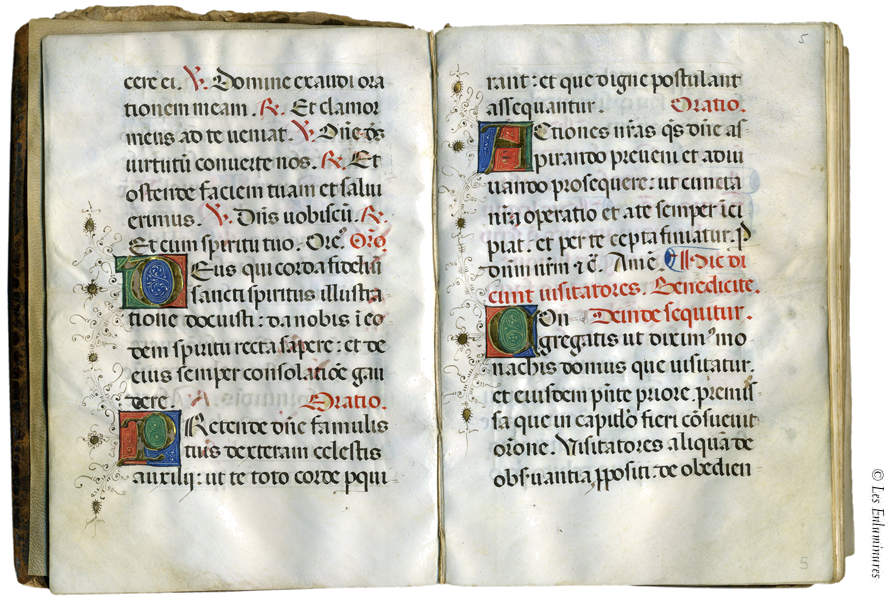 cere ei. V. Domine exaudi ora
tionem meam. R. Et clamor
meus ad te ueniat. V. Dñe ds̄
uirtutū conuerte nos. R. Et
ostende faciem tuam et salui
erimus. V. Dñs uobiscū. R.
Et cum spiritu tuo. Orẽ? Orõ
Deus qui corda fideliū
sancti spiritus illustra
tione docuisti: da nobis ī eo
dem spiritu recta sapere: et de
eius semper consolatiõe gau
dere. Oratio.
Pretende dñe famulis
tuis dexteram celestis
auxilij: ut te toto corde pqui
5
rant: et que digne postulant
assequantur. Oratio.
Actiones nr̄as qs̄ dñe as
pirando preueni et adiu
uando prosequere: ut cuncta
nr̄a operatio et a te semper īci
piat: et per te cepta finiatur. P
dnm̄ nrm̄ ⁊ c̄. Amē. Dic di
cunt uisitatores. Benedicite.
Con Deinde sequitur.
gregatis ut dixim? mo
nachis domus que uisitatur.
et eiusdem pñte priore. premis
sa que in capitło fieri cõsueuit
orõne. Visitatores aliqua de
obs̄uantia ꝓpositi: de obedien
5
© Les Enluminures